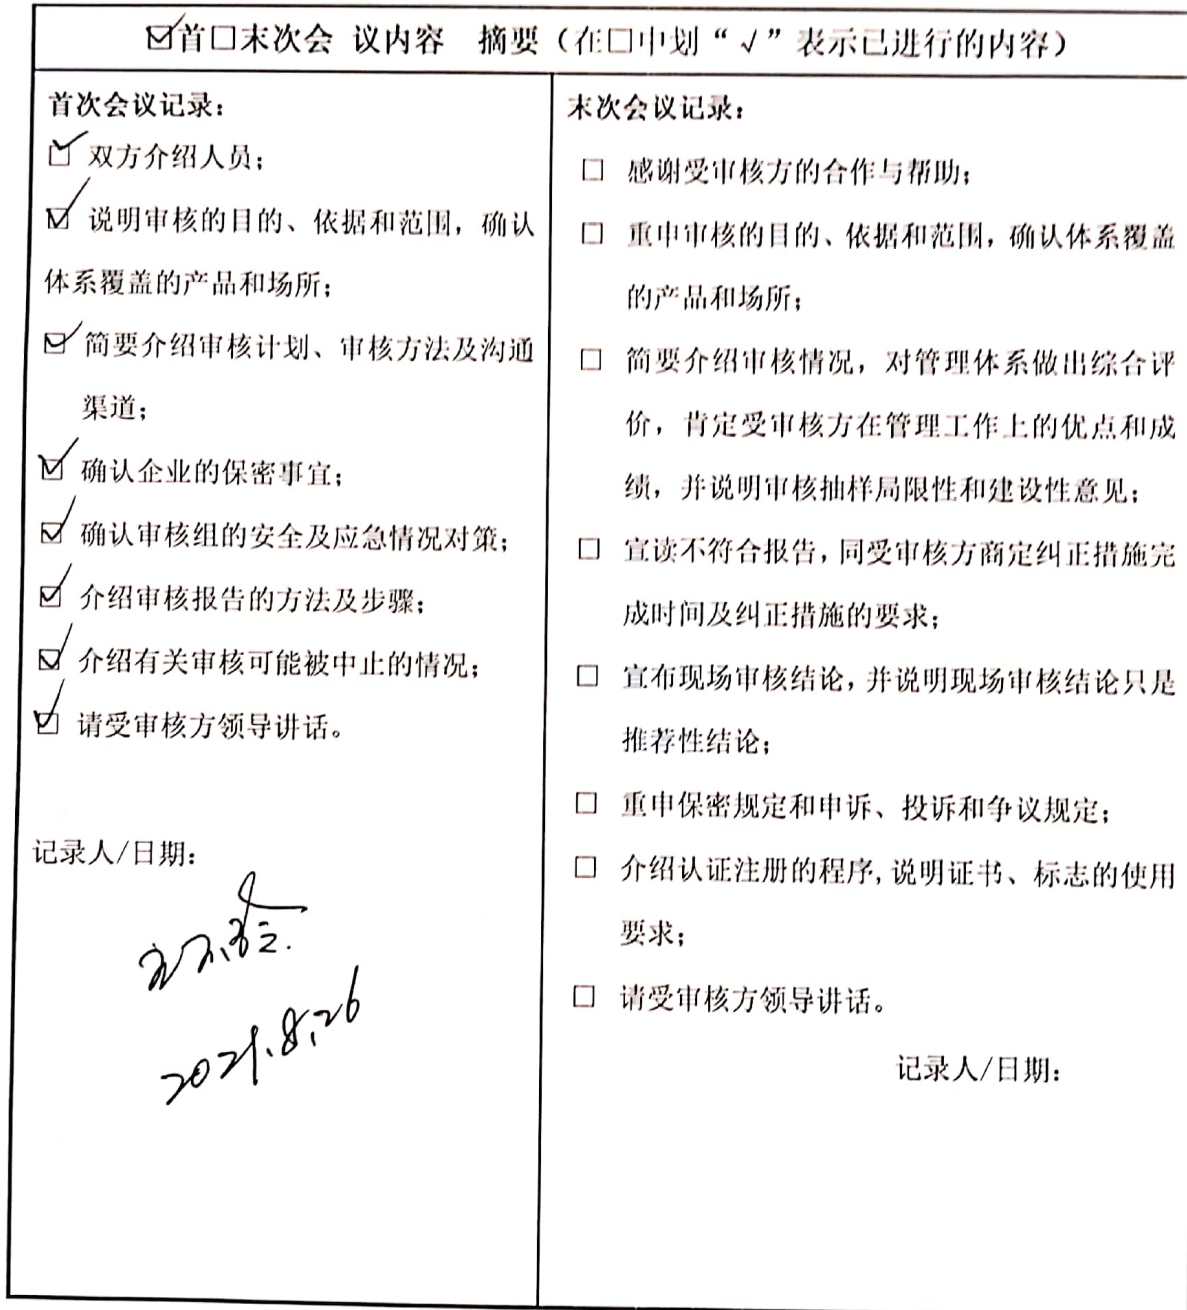 ☑首□末次会 议内容 摘要（在□中划“√”表示已进行的内容）
首次会议记录：
☑ 双方介绍人员；
☑ 说明审核的目的、依据和范围，确认
体系覆盖的产品和场所；
☑ 简要介绍审核计划、审核方法及沟通
渠道；
☑ 确认企业的保密事宜；
☑ 确认审核组的安全及应急情况对策；
☑ 介绍审核报告的方法及步骤；
☑ 介绍有关审核可能被中止的情况；
☑ 请受审核方领导讲话。
记录人/日期：
2021.8.26
末次会议记录：
□ 感谢受审核方的合作与帮助；
□ 重申审核的目的、依据和范围，确认体系覆盖
的产品和场所；
□ 简要介绍审核情况，对管理体系做出综合评
价，肯定受审核方在管理工作上的优点和成
绩，并说明审核抽样局限性和建设性意见；
□ 宣读不符合报告，同受审核方商定纠正措施完
成时间及纠正措施的要求；
□ 宣布现场审核结论，并说明现场审核结论只是
推荐性结论；
□ 重申保密规定和申诉、投诉和争议规定；
□ 介绍认证注册的程序，说明证书、标志的使用
要求；
□ 请受审核方领导讲话。
记录人/日期：